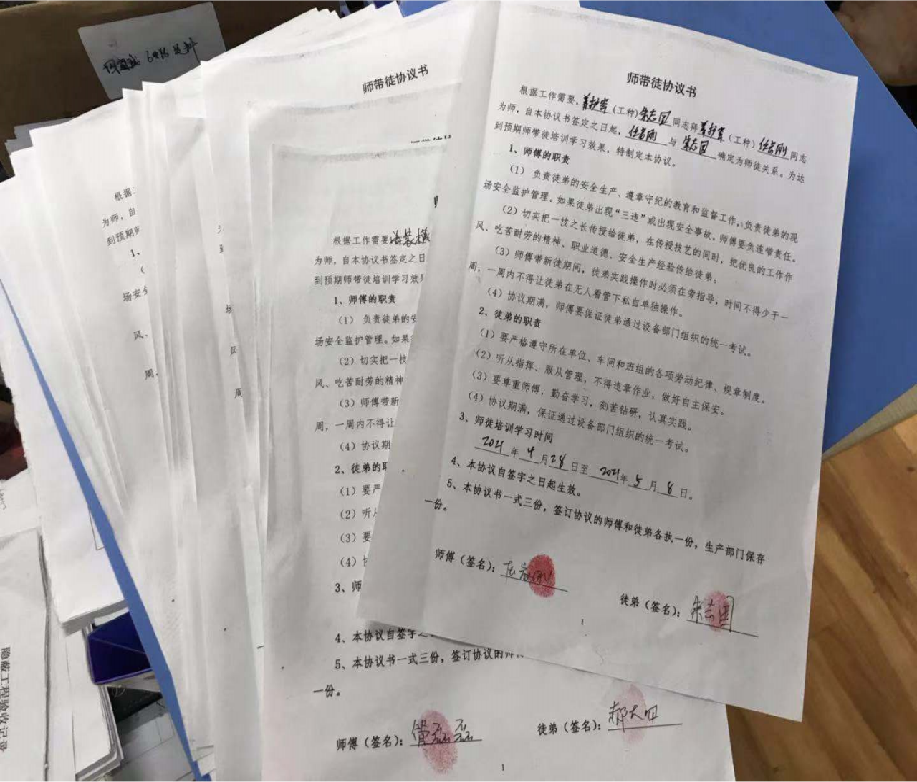 师带徒协议书
根据工作需要，（工种）朱志国同志师（工种）同志
为师，自本协议书签定之日起，与朱志国确定为师徒关系。为达
到预期师带徒培训学习效果，特制定本协议。
1、师傅的职责
（1）负责徒弟的安全生产、遵章守纪的教育和监督工作，负责徒弟的现
场安全监护管理。如果徒弟出现“三违”或出现安全事故，师傅要负连带责任。
（2）切实把一技之长传授给徒弟，在传授技艺的同时，把优良的工作作
风、吃苦耐劳的精神、职业道德、安全生产经验传给徒弟。
（3）师傅带新徒期间，徒弟实践操作时必须在旁指导，时间不得少于一
周，一周内不得让徒弟在无人看管下私自单独操作。
（4）协议期满，师傅要保证徒弟通过设备部门组织的统一考试。
2、徒弟的职责
（1）要严格遵守所在单位、车间和班组的各项劳动纪律、规章制度。
（2）听从指挥、服从管理，不得违章作业、做好自主保安。
（3）要尊重师傅，勤奋学习，刻苦钻研，认真实践。
（4）协议期满，保证通过设备部门组织的统一考试。
3、师徒培训学习时间
2021年4月28日至2021年5月8日。
4、本协议自签字之日起生效。
5、本协议书一式三份，签订协议的师傅和徒弟各执一份，生产部门保存
一份。
师傅（签名）：
徒弟（签名）：朱志国
1
师带徒协议书
根据工作需要
为师，自本协议书签定之日
到预期师带徒培训学习效果
1、师傅的职责
（1）负责徒弟的安
场安全监护管理。如果
（2）切实把一技
风、吃苦耐劳的精神
（3）师傅带新
周，一周内不得让
（4）协议期
2、徒弟的职
（1）要严
（2）听从
（3）要
（4）协
3、师
4、本协议自签字之
5、本协议书一式三份，签订协议的师
一份。
师傅（签名）：
徒弟（签名）：郝大四
1
根据
为师，自
到预期师
1、
（
场安全
风、
周，
隐蔽工程验收记录